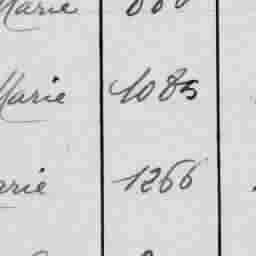 Marie
Marie 1085
arie 1266